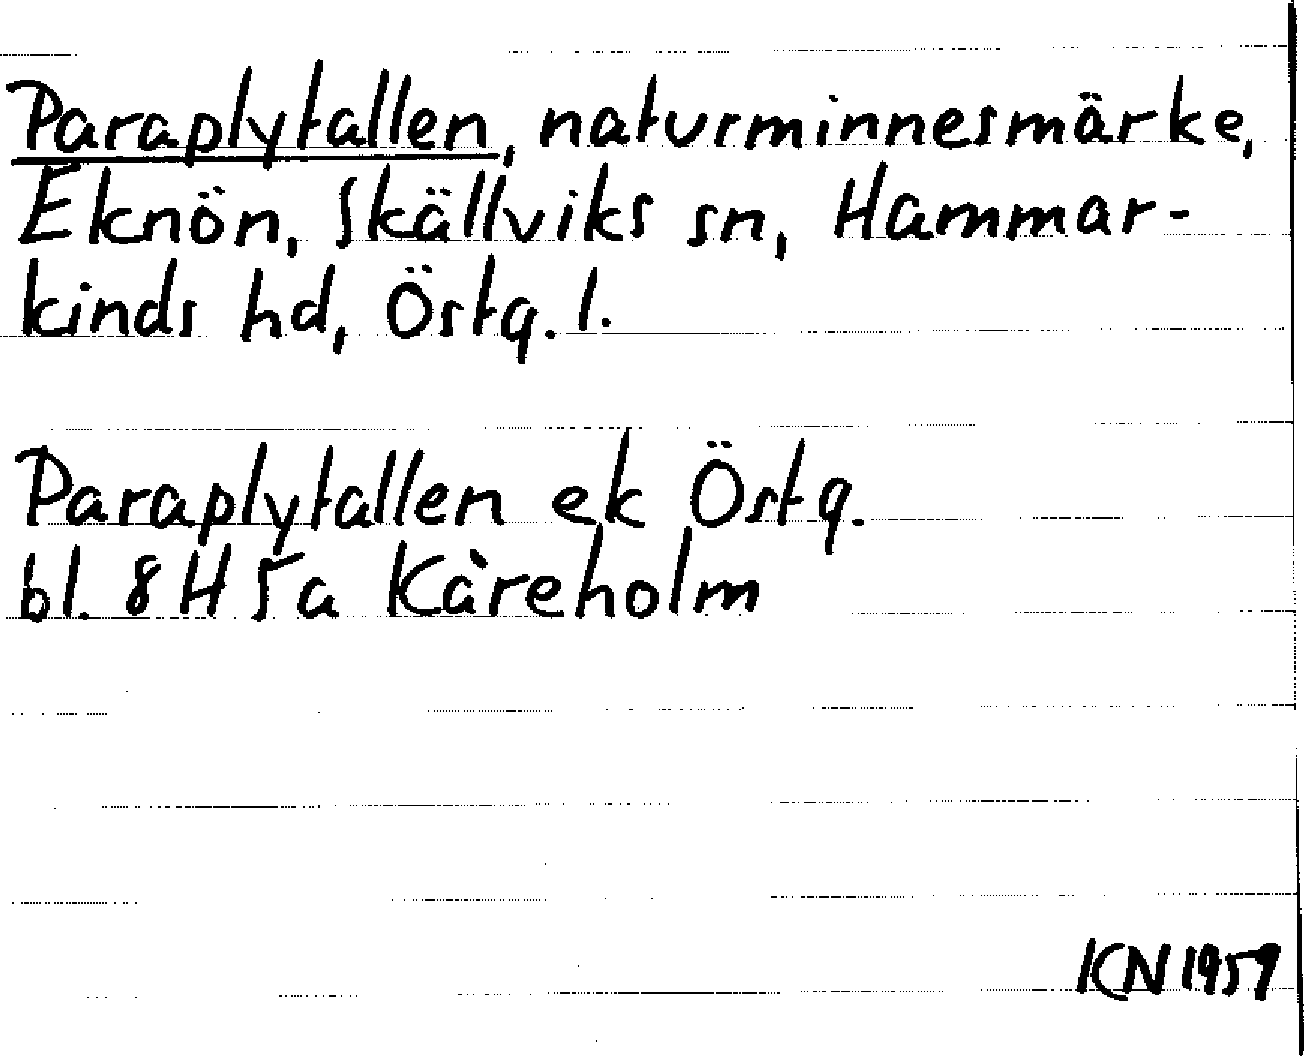 Paraplytallen, naturminnesmärke,
Eknön, Skällviks sn, Hammar-
kinds hd, Östg. l.
Paraplytallen ek Östg.
bl. 8H 5a Kåreholm
KN 1959